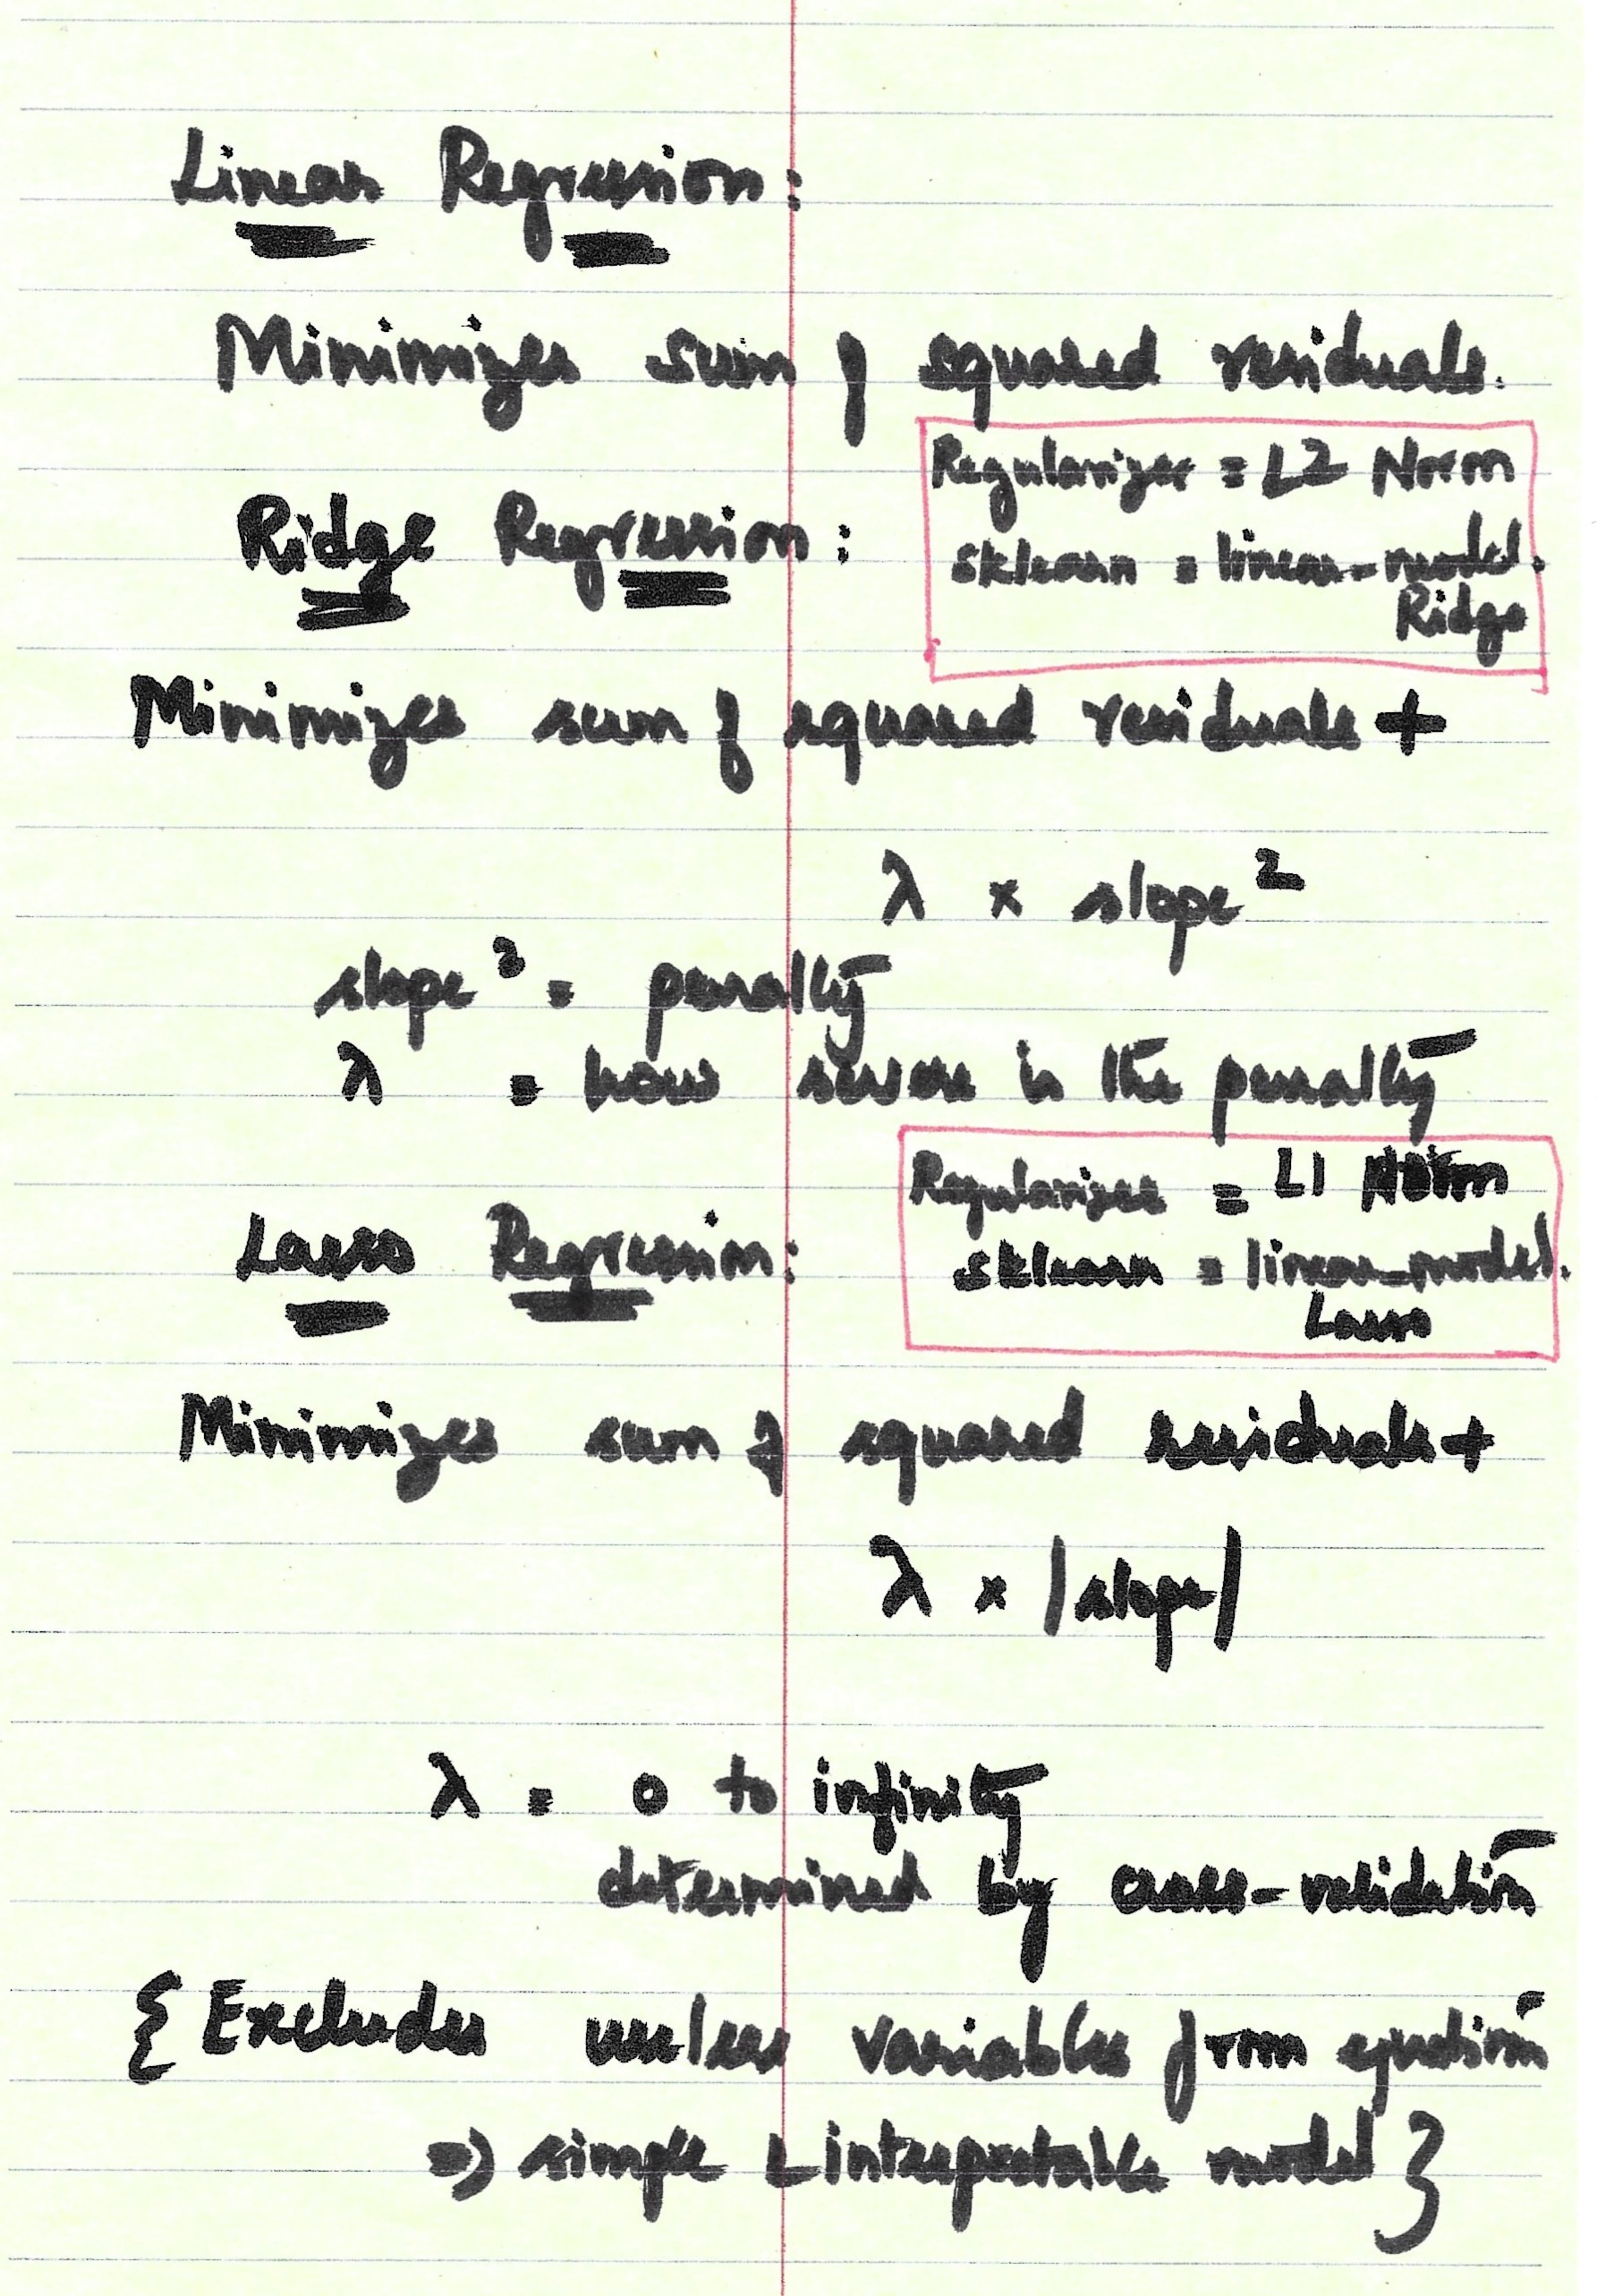 Linear Regression:
Minimizes sum of squared residuals.
Regularizer = L2 Norm
sklearn = linear_model.
Ridge
Ridge Regression:
Minimizes sum of squared residuals +
λ × slope²
slope² = penalty
λ = how severe is the penalty
Regularizer = L1 Norm
sklearn = linear_model.
Lasso
Lasso Regression:
Minimizes sum of squared residuals +
λ × |slope|
λ = 0 to infinity
determined by cross-validation
{ Excludes useless variables from equation
=) simple & interpretable model }